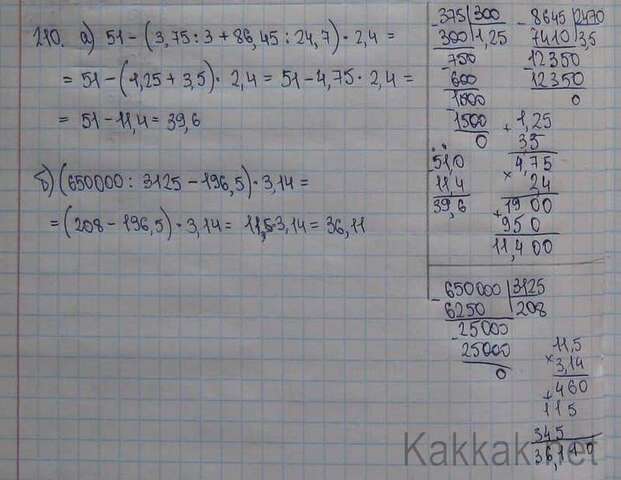 210. а) 51 - (3,75 : 3 + 86,45 : 24,7) · 2,4 =
= 51 - (1,25 + 3,5) · 2,4 = 51 - 4,75 · 2,4 =
= 51 - 11,4 = 39,6
б) (650000 : 3125 - 196,5) · 3,14 =
= (208 - 196,5) · 3,14 = 11,5 · 3,14 = 36,11
- 375 | 300
300 | 1,25
- 750
600
- 1500
1500
0
- 8645 | 2470
7410 | 3,5
- 12350
12350
0
+ 1,25
3,5
4,75
× 24
+ 1900
950
11,400
- 51,0
11,4
39,6
- 650000 | 3125
6250 | 208
- 25000
25000
0
× 11,5
3,14
+ 460
115
345
36,110
Kakkak.net